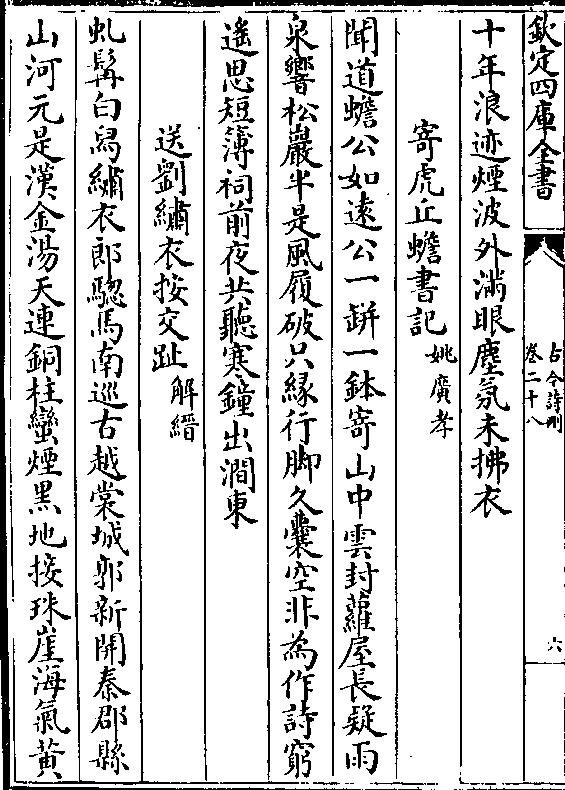 欽定四庫全書
古今詩刪
卷二十八
六
十年浪迹煙波外滿眼塵氛未拂衣
寄虎丘蟾書記
姚廣孝
聞道蟾公如遠公一缾一鉢寄山中雲封蘿屋長疑雨
泉響松巖半是風履破只緣行脚久囊空非為作詩窮
遙思短簿祠前夜共聽寒鐘出澗東
送劉繡衣按交趾
解縉
虬髯白舄繡衣郎驄馬南巡古越裳城郭新開秦郡縣
山河元是漢金湯天連銅柱蠻煙黑地接珠崖海氣黃